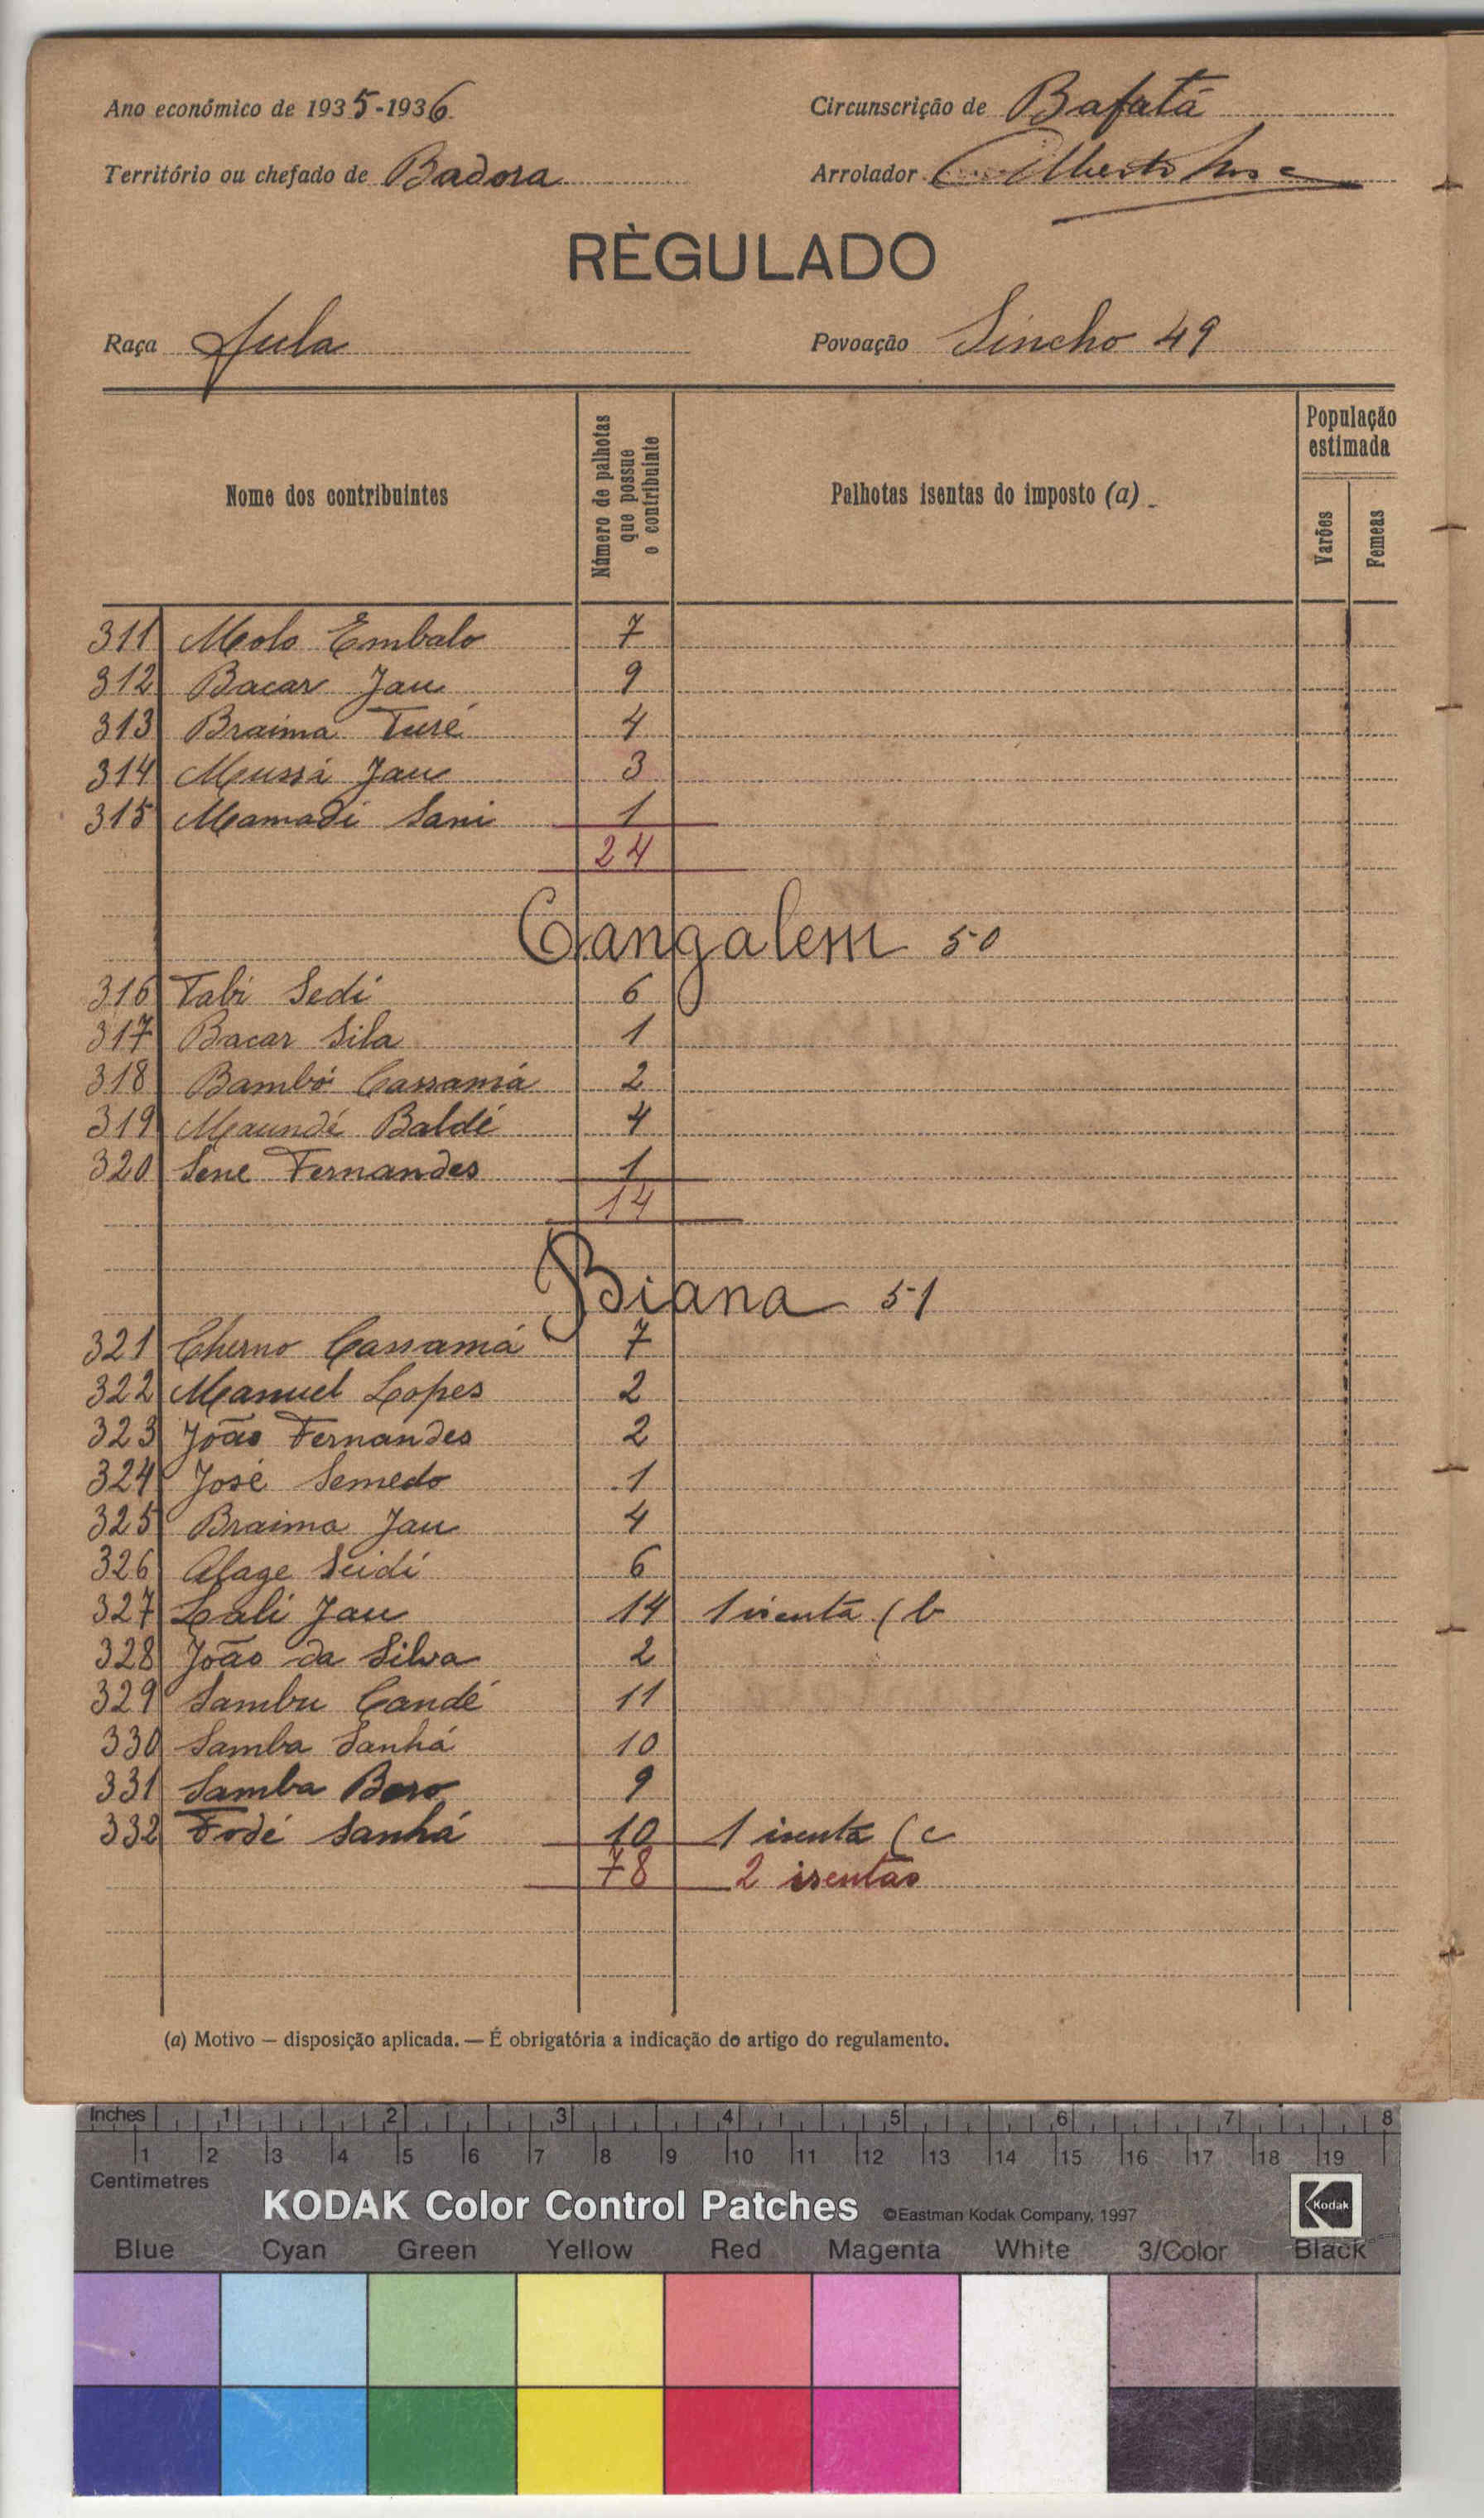 Ano económico de 1935-1936
Circunscrição de Bafatá
Território ou chefado de Badora
Arrolador
RÈGULADO
Raça Fula
Povoação Sincho 49
Nome dos contribuintes
Número de palhotas que possue o contribuinte
Palhotas isentas do imposto (a)
População estimada
Varões
Femeas
311 Molo Embalo 7
312 Bacar Jau 9
313 Braima Turé 4
314 Mussá Jau 3
315 Mamadi Sani 1
24
Gangalem 50
316 Tabi Sedi 6
317 Bacar Sila 1
318 Bambó Cassamá 2
319 Maundé Baldé 4
320 Sene Fernandes 1
14
Biana 51
321 Cherno Cassamá 7
322 Manuel Lopes 2
323 João Fernandes 2
324 José Semedo 1
325 Braima Jau 4
326 Alage Seidi 6
327 Lali Jau 14 1 isenta (b
328 João da Silva 2
329 Sambu Candé 11
330 Samba Sanhá 10
331 Samba Boro 9
332 Fodé Sanhá 10 1 isenta (c
78 2 isentas
(a) Motivo — disposição aplicada. — É obrigatória a indicação do artigo do regulamento.
Inches 1 2 3 4 5 6 7 8
1 2 3 4 5 6 7 8 9 10 11 12 13 14 15 16 17 18 19
Centimetres
KODAK Color Control Patches ©Eastman Kodak Company, 1997 Kodak
Blue Cyan Green Yellow Red Magenta White 3/Color Black